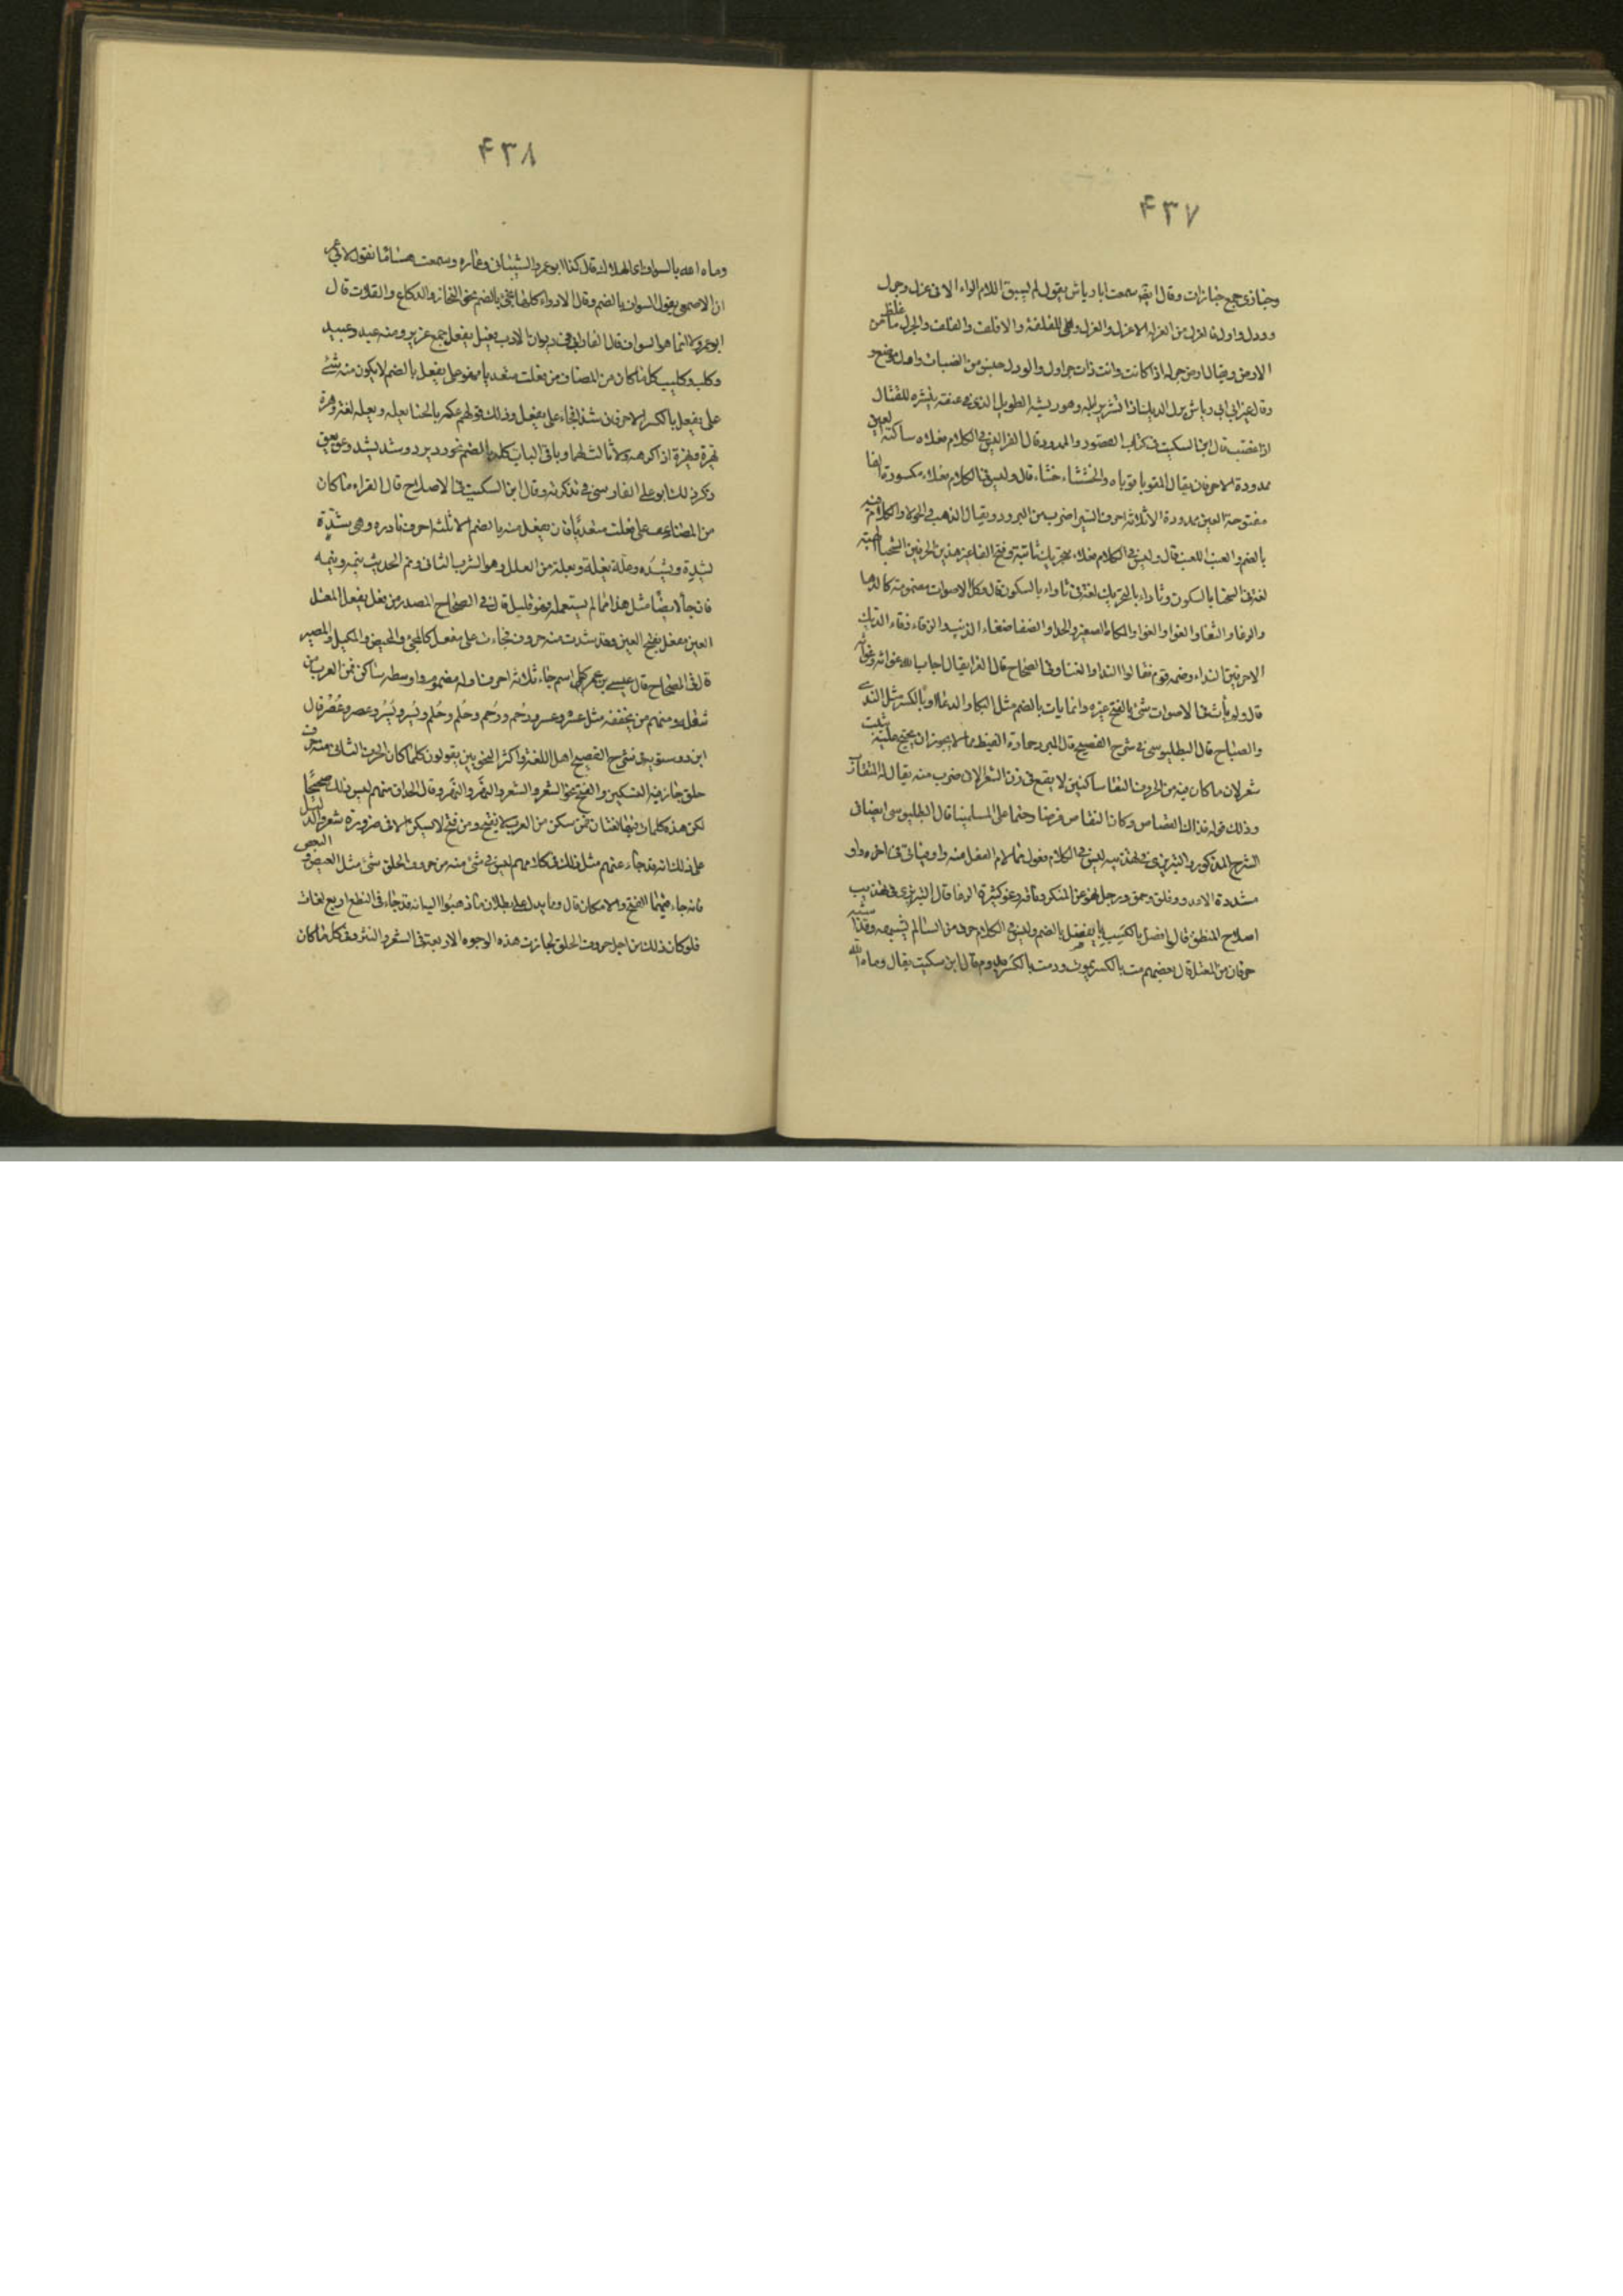 ۴۳۷
وجنازى جمع جنازات وقال ايضا سمعت ابا رياش يقول لم يسبق اللام الراء الا فى غرل وجرل
وورل واول فالغرل من الغرلة الاغرل والغرل وهى القلفة والاقلف والقلف والجرل ما غلظ من
الارض ويقال ارض جرلة اذا كانت ذات جراول والورل جنس من الضباب
وقال غير ابى رياش برل الديك اذا نشر برائله وهو ريشه الطويل الذى فى عنقه ينشره للقتال
اذا غضب قال ابن السكيت فى كتاب المقصور والممدود قال الفرا ليس فى الكلام فعلاء ساكنة العين
ممدودة الا حرفان يقال للقوبا قوباء والخششاء خشاء قال وليس فى الكلام فعلاء مكسورة الفا
مفتوحة العين ممدودة الا ثلاثة احرف السيرا ضرب من البرود ويقال الذهب فى الحولا والكلام فيه
بالضم والعنب للعنب قال وليس فى الكلام فعلاء بتحريك ثانيه وفتح الفا غير هذين الحرفين السحنا الهيئة
لغة فى السحنا بالسكون وثاداء بالتحريك لغة فى ثاداء بالسكون قال وكل الاصوات مضمومة كالدعا
والرغا والثغا والعوا والمكاء الصفير والحدا والضغا ضغاء الذئب والزقاء زقاء الديك
الا حرفين النداء وضمه قوم فقالوا النداء والغنا وفى الصحاح قال الفرا يقال اجاب الله غواثه وغواثه
قال ولم يأت فى الاصوات شئ بالفتح غيره وانما ياتى بالضم مثل البكا والدعا او بالكسر مثل الندا
والصياح قال البطليوسى فى شرح الفصيح قال المبرد حمارة القيظ مما لا يجوز ان يحتج عليه ببيت
شعر لان ما كان فيه من الحروف التقا ساكنين لا يقع فى وزن الشعر الا فى ضرب منه يقال له المتقارب
وذلك قوله فذاك القصاص وكان التقاص فرضا وحتما على المسلمينا قال البطليوسى ايضا فى
الشرح المذكور والتبريزى فى تهذيبه ليس فى الكلام فعول مما لام الفعل منه واو فياتى فى اخره واو
مشددة الا عدو وفلو وحسو ورجل لهو عن المنكر وناقة رغو كثيرة الرغا قال التبريزى فى تهذيب
اصلاح المنطق قال فضل بالكسر يفضل بالضم وليس فى الكلام حرف من السالم يشبهه وقد اشبه
حرفان من المعتل قال بعضهم مت بالكسر يموت ودمت بالكسر يدوم قال ابن سكيت يقال رماه الله
۴۳۸
رماه الله بالسواف اى الهلاك قال كذا ابو عمرو الشيبانى وعماره وسمعت هشاما يقول لابى عمرو
ان الاصمعى يقول السواف بالضم وقال الادواء كلها تجئ بالضم نحو النحاز والدكاع والقلاب قال
ابو عمرو لا انما هو السواف قال الفارابى فى ديوان الادب فعيل لفعل جمع عزيز ومنه عبد وعبيد
وكلب وكليب كل ما كان من المضاعف من فعلت متعديا فهو على يفعل بالضم لا يكون منه شئ
على يفعل بالكسر الا حرفان شذا فجاء على يفعل ويفعل وذلك قولهم عله بالحنا يعله ويعله لغة وهره
يهره ويهره اذا كرهه ولا ثالث لهما وباقى الباب كله بالضم نحو رد يرد وشد يشد وعق يعق
ذكر ذلك ابو على الفارسى فى تذكرته وقال ابن السكيت فى الاصلاح قال الفراء ما كان
من المضاعف على فعلت متعديا فان يفعل منه بالضم الا ثلثة احرف نادره وهى شده
يشده ويشده وعله يعله ويعله من العلل وهو الشرب الثانى ونم الحديث ينمه وينمه
فان جا ايضا مثل هذا مما لم يستعمله فهو قليل قال فى الصحاح المصدر من فعل يفعل المعتل
العين مفعل بفتح العين وقد شذت منه حروف فجاءت على مفعل كالمجئ والمحيض والمكيل والمصير
قال فى الصحاح قال عيسى بن عمر كل اسم جاء ثلاثة احرف اوله مضموم واوسطه ساكن فمن العرب من
يثقله ومنهم من يخففه مثل عسر وعسر ورحم ورحم وحلم وحلم ويسر ويسر وعصر وعصر قال
ابن درستويه فى شرح الفصيح اهل اللغة واكثر النحويين يقولون كلما كان الحرف الثانى منه حرف
حلق جاز فيه التسكين والفتح نحو الشعر والشعر والنهر والنهر وقال الحذاق منهم ليس ذلك صحيحا
لكن هذه كلمات فيها لغتان فمن سكن من العرب لا يفتح ومن فتح لا يسكن الا فى ضرورة شعر والدليل
على ذلك انه قد جاء عنهم مثل ذلك فى كلام ليس فى شئ منه من حروف الحلق شئ مثل القبض والقبض
فانه جاء فيهما الفتح والاسكان قال ومما يدل على بطلان ما ذهبوا اليه انه قد جاء فى النطع اربع لغات
فلو كان ذلك من اجل حروف الحلق لجازت هذه الوجوه الاربعة فى الشعر والنثر وفى كل ما كان